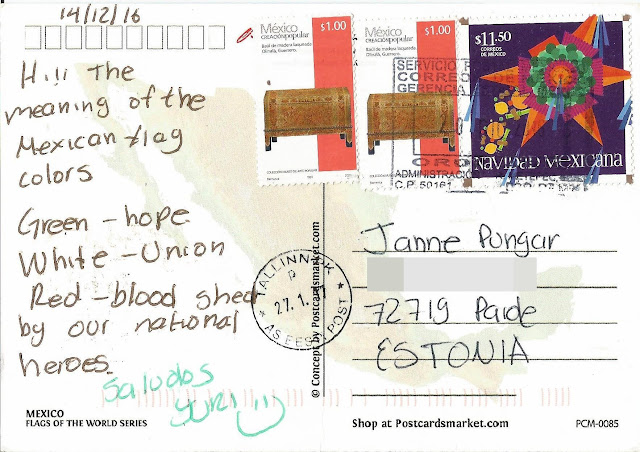 14/12/16
Hi!! The
meaning of the
Mexican flag
colors
Green – hope
White – Union
Red – blood shed
by our national
heroes.
Saludos
YURI !!
MEXICO
FLAGS OF THE WORLD SERIES
México
CREACIÓN popular
$1.00
Baúl de madera laqueada
Olinalá, Guerrero.
México
CREACIÓN popular
$1.00
Baúl de madera laqueada
Olinalá, Guerrero.
$11.50
CORREOS
DE MÉXICO
NAVIDAD MEXICANA
SERVICIO
CORREO
GERENCIA
ADMINISTRACIÓN
C.P. 50161
TALLINN
P
27.1.
AS EESTI POST
© Concept by Postcardsmarket.com
Janne Pungar
72719 Paide
ESTONIA
Shop at Postcardsmarket.com
PCM-0085